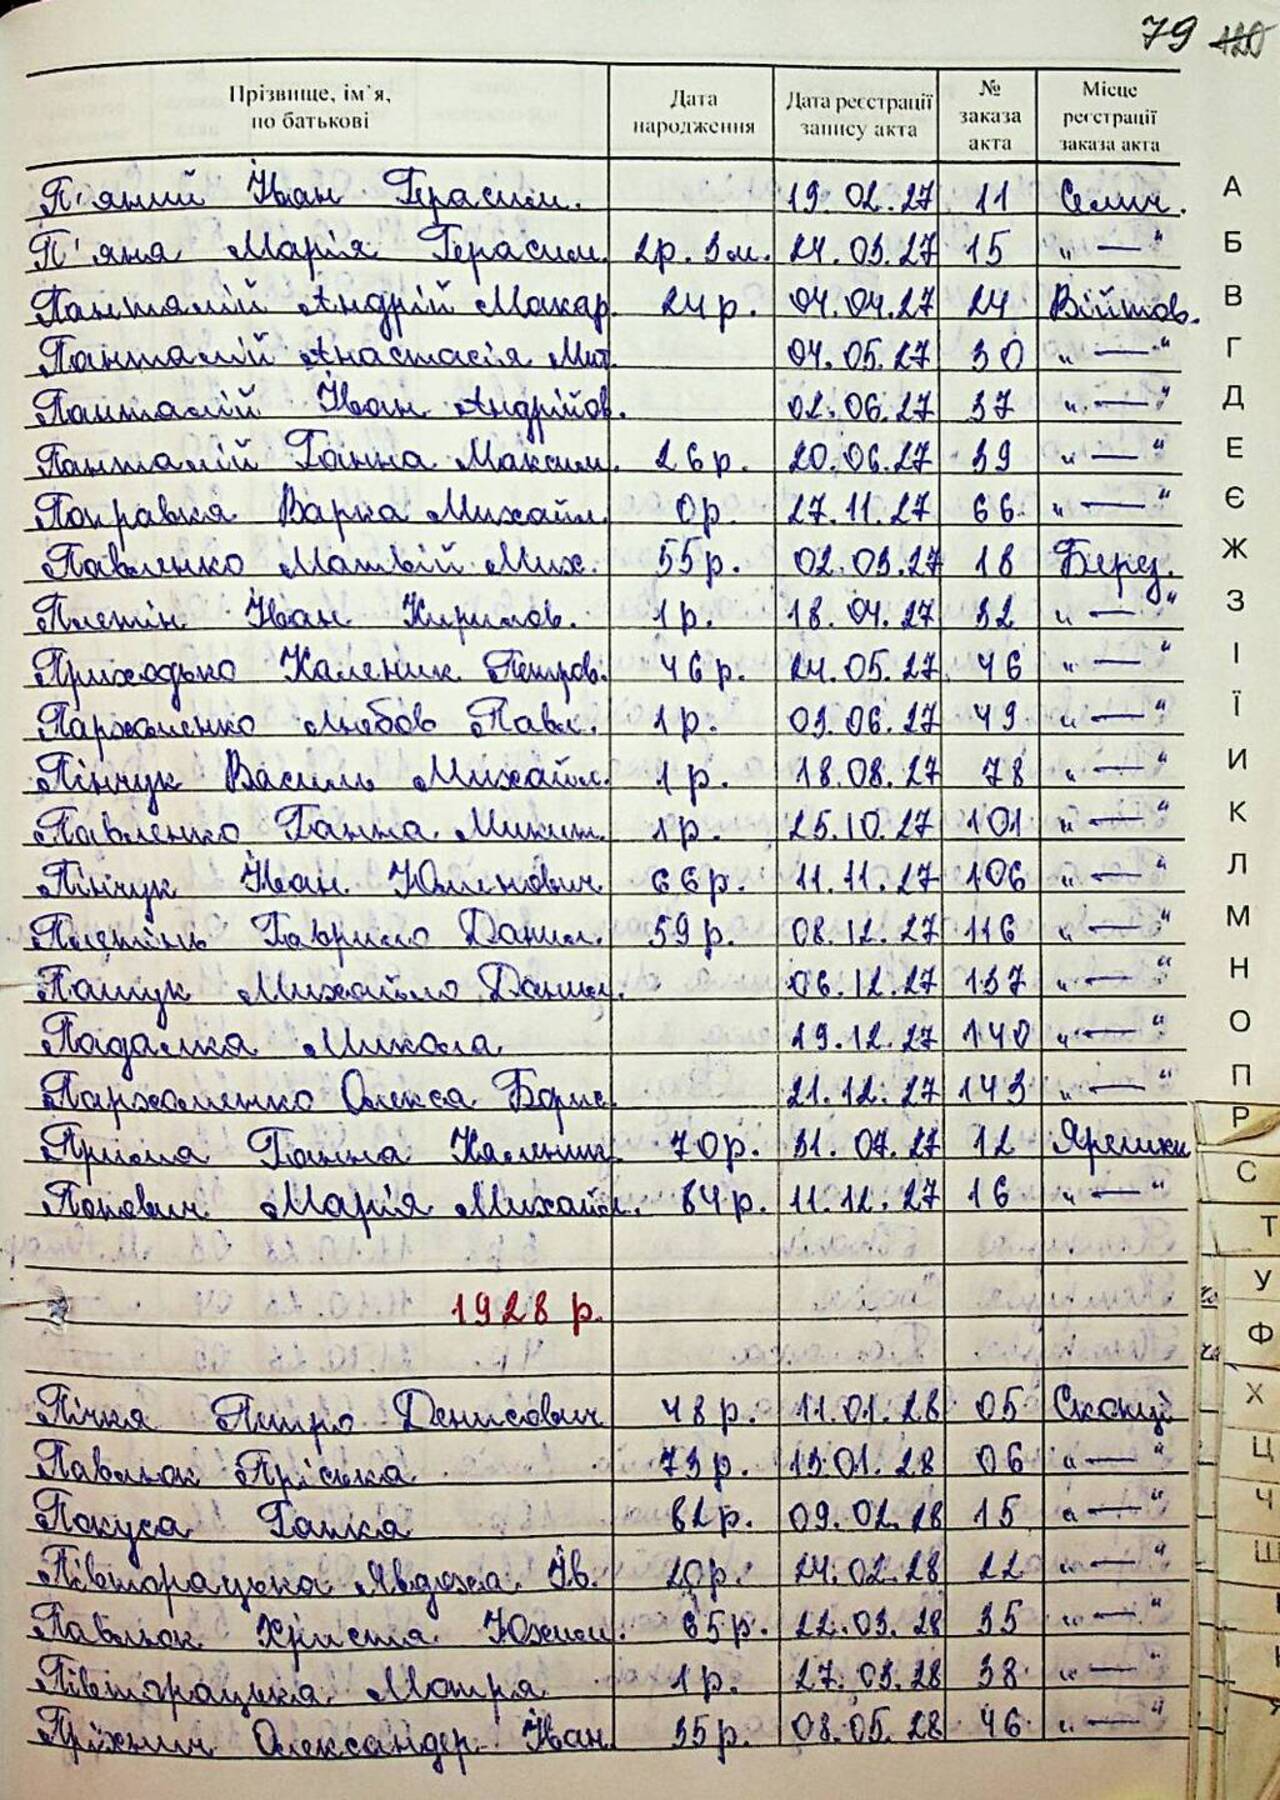 79 120
Прізвище, ім'я, по батькові Дата народження Дата реєстрації запису акта № заказа акта Місце реєстрації заказа акта
П'яний Іван Герасим. 19.02.27 11 Селич.
П'яна Марія Герасим. 2р. 3м. 24.03.27 15 „ — "
Панталій Андрій Макар. 24р. 04.04.27 24 Війтов.
Панталій Анастасія Мит. 04.05.27 30 „ — "
Панталій Іван Андрійов. 02.06.27 37 „ — "
Панталій Ганна Максим. 26р. 20.06.27 39 „ — "
Покравка Варка Михайл. 0р. 27.11.27 66 „ — "
Павленко Матвій Мих. 55р. 02.03.27 18 Берез.
Плетін Іван Кирилов. 1р. 18.04.27 32 „ — "
Приходько Каленик Петров. 46р. 24.05.27 46 „ — "
Пархоменко Любов Павл. 1р. 03.06.27 49 „ — "
Пінчук Василь Михайл. 1р. 18.08.27 78 „ — "
Павленко Ганна Микит. 1р. 25.10.27 101 „ — "
Пінчук Іван Юхимович 66р. 11.11.27 106 „ — "
Плетінь Гаврило Данил. 59р. 08.12.27 116 „ — "
Пащук Михайло Данил. 06.12.27 137 „ — "
Падалка Микола 19.12.27 140 „ — "
Пархоменко Олекса Борис. 21.12.27 143 „ — "
Прийма Ганна Каленик. 70р. 31.07.27 12 Ярешки
Попович Марія Михайл. 64р. 11.12.27 16 „ — "
1928 р.
Пічкя Петро Денисович 48р. 11.01.28 05 Скакці
Павлюк Пріська 73р. 13.01.28 06 „ — "
Покуса Галка 62р. 09.02.28 15 „ — "
Півторацька Явдоха Ів. 20р. 24.02.28 22 „ — "
Павлюк Христя Юхим. 65р. 22.03.28 35 „ — "
Півторацька Мотря 1р. 27.03.28 38 „ — "
Олександер Іван 35р. 08.05.28 46 „ — "
А
Б
В
Г
Д
Е
Є
Ж
З
І
Ї
И
К
Л
М
Н
О
П
Р
С
Т
У
Ф
Х
Ц
Ч
Ш